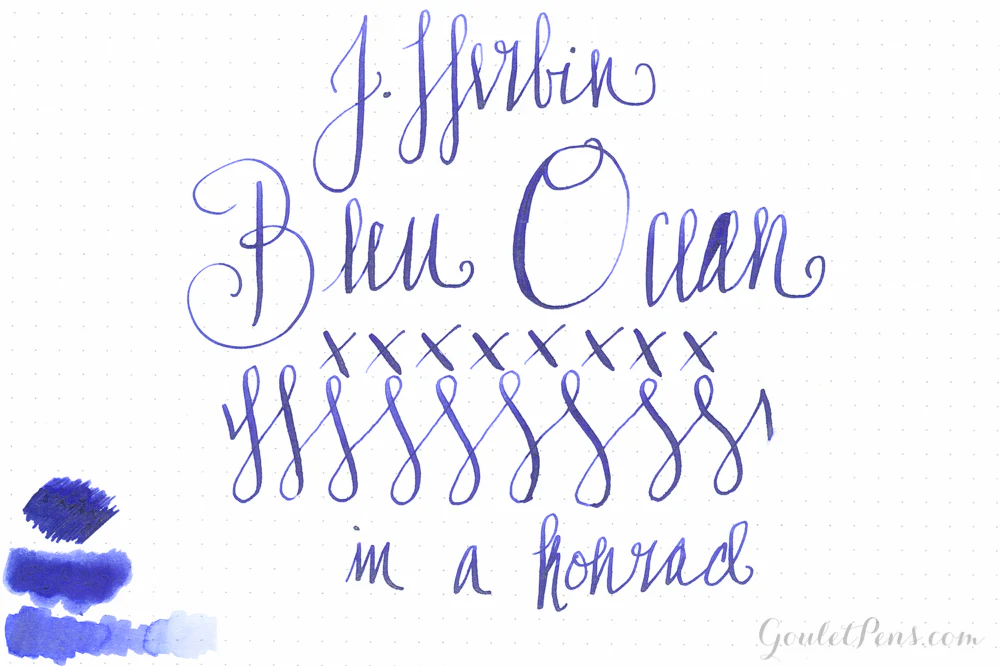 J. Herbin
Bleu Ocean
x x x x x x x x
in a Konrad
GouletPens.com